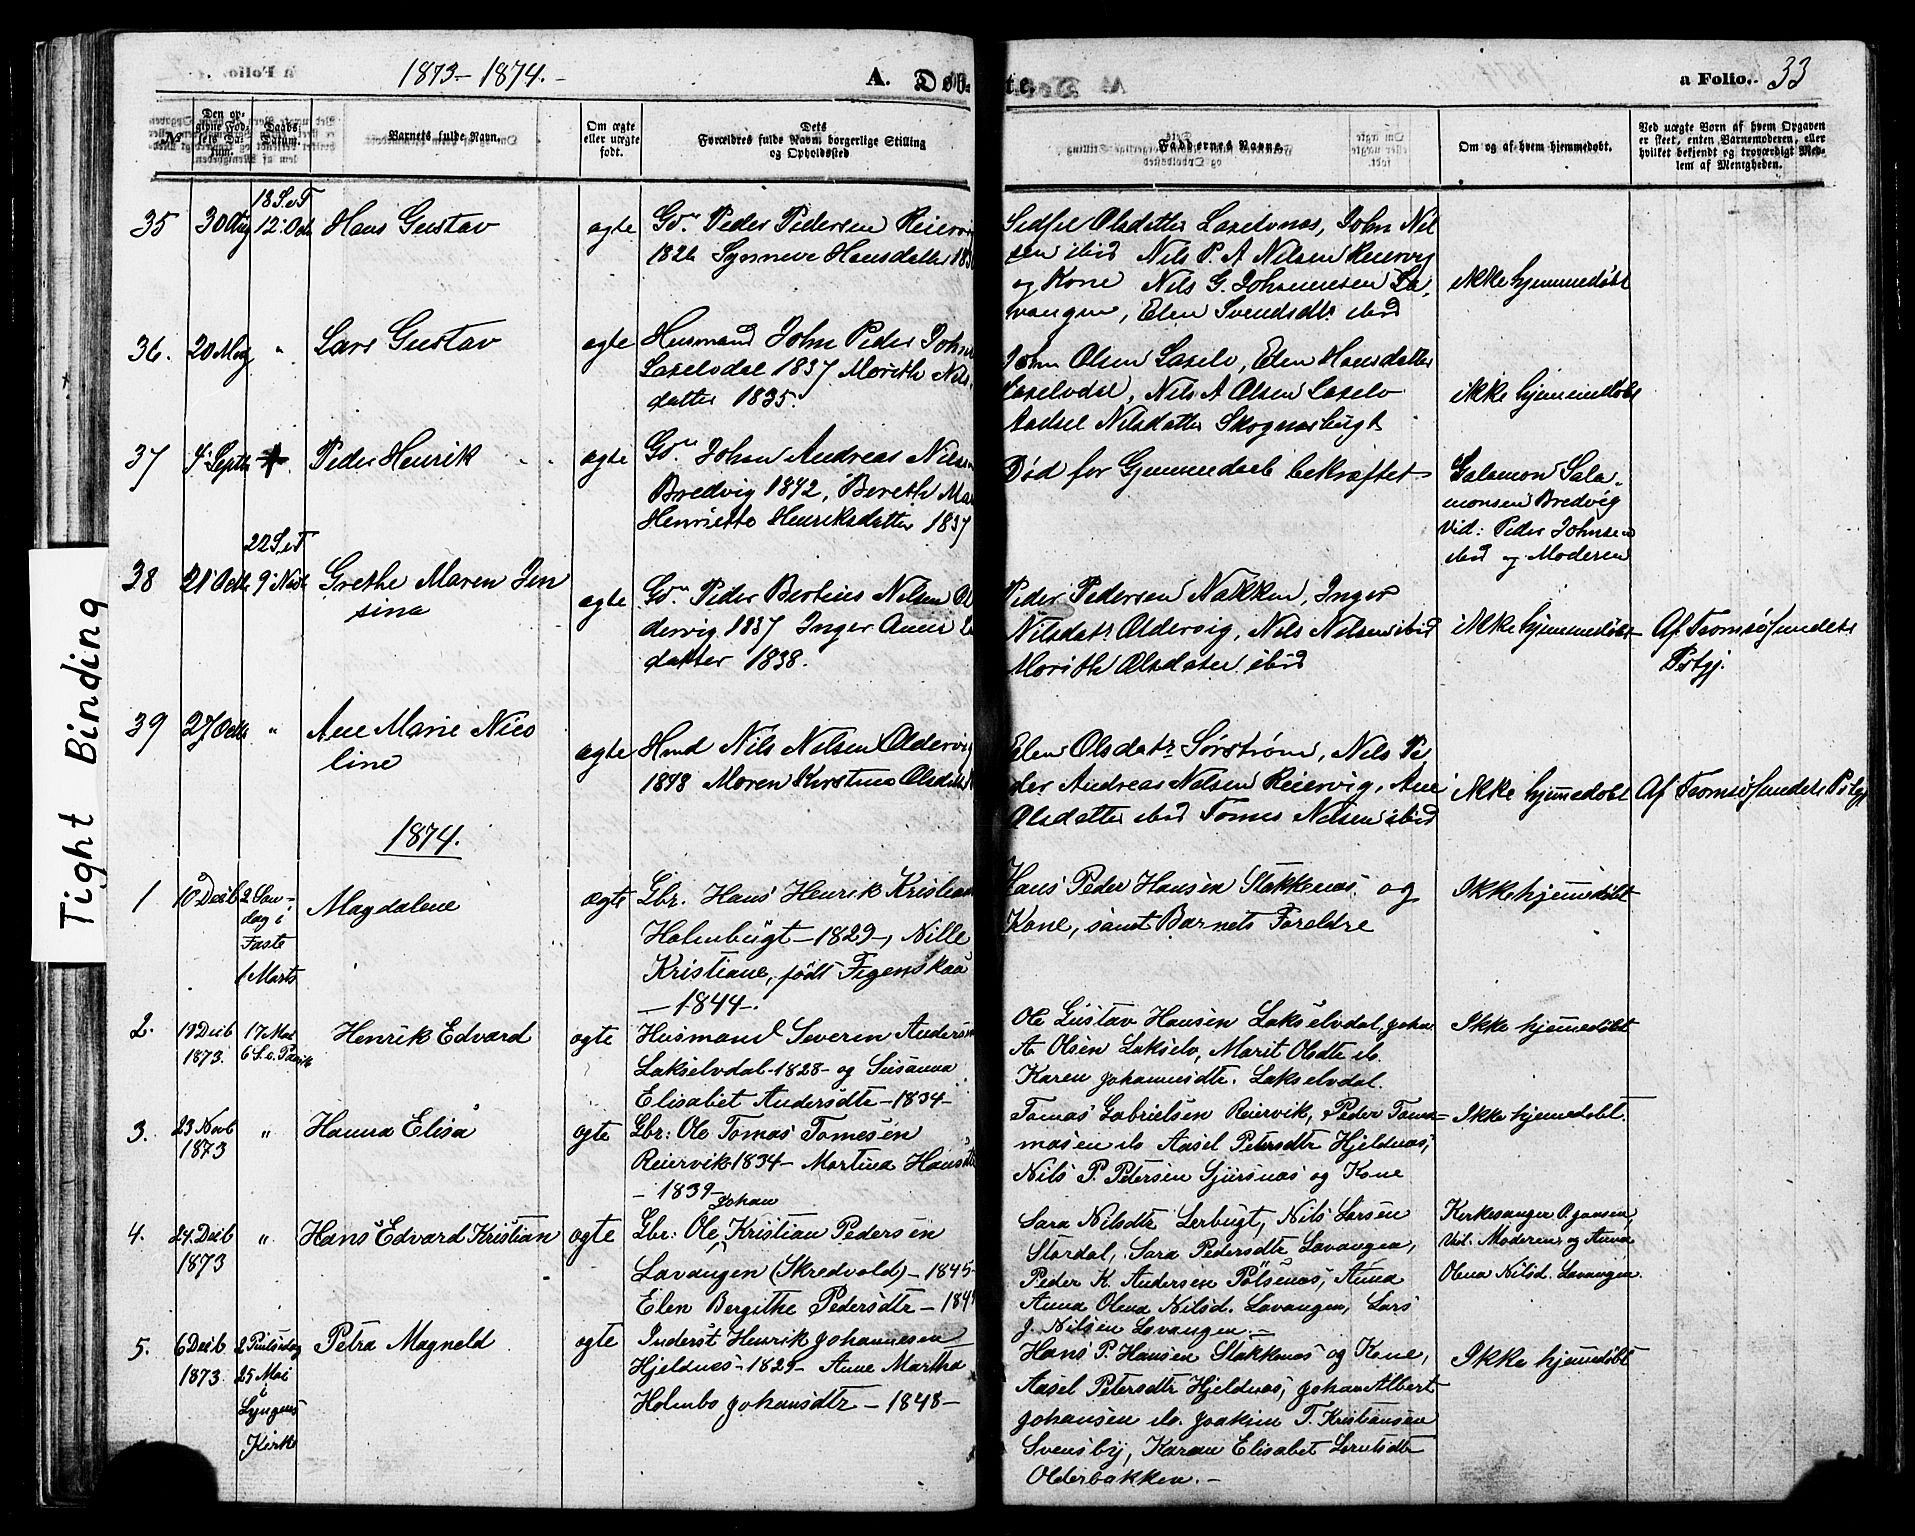 1873-1874.-
A. Døb te.
a Folio. 33
No
Den opgivne Fødsels Datum.
Daabs Datum.
Barnets fulde Navn.
Om ægte eller uægte født.
Dets Forældres fulde Navn, borgerlige Stilling og Opholdssted
Faddernes Navne.
Om og af hvem hjemmedøbt.
Ved uægte Børn af hvem Opgaven er skeet, enten Barnemoderen, eller hvilket bekjendt og troværdigt Medlem af Menigheden.
Tight Binding
18 S e T
35 30 Aug 12' Oct. Hans Gustav ægte Gd. Peder Pedersen Reiervig
1826 Synneve Hansdatter
Sidsel Olsdatter Laxelvnæs, John Nil
sen ibid Nils P. A Nilsen Reiervig
og Kone Nils G. Johannesen La
vangen, Elen Svendsdtr ibid
ikke hjemmedøbt
36. 20 " Lars Gustav ægte Husmand John Peder John
Laxelvdal 1837 Morith Nils
datter 1835.
John Olsen Laxelv, Elen Hansdatter
Laxelvdal, Nils A Olsen Laxelv
Aadsel Nilsdatter Skognæsbugt
ikke hjemmedøbt
37 4' Septb Peder Henrik ægte Gd. Johan Andreas Nilsen
Bredvig 1842, Bereth Mar
Henriette Henriksdatter 1837
Død før Hjemmedaab bekræftet
Salamon Sala-
monsen Bredvig
Vid: Peder Johnsen
ibid og Moderen
22 S e T
38 21' Octb 9' Novb Grethe Maren Jen
sine
ægte Gd. Peder Bertius Nilsen Ol
dervig 1837 Inger Anne
datter 1838.
Peder Pedersen Nakken, Inger
Nilsdatr Oldervig, Nils Nilsen ibid
Morith Olsdatter ibid
ikke hjemmedøbt
Af Tromsøsundets
Prstgj.
39 27 Octb " Ane Marie Nico
line
ægte Hmd Nils Nilsen Oldervig
1848 Maren Kirstine Olsdatter
Elen Olsdatr Sørstrøm, Nils Pe
der Andreas Nilsen Reiervig, Ane
Olsdatter ibid Tomes Nilsen ibid
ikke hjemmedøbt
Af Tromsøsundets Prstgj
1874.
1 10 Decb 2 Søn-
dag i
Faste
1 Marts
Magdalene
ægte Gbr. Hans Henrik Kristian
Holmbugt - 1829 -, Nille
Kristiane, født Figenskau
- 1844 -
Hans Peder Hansen Stakkenæs og
Kone, samt Barnets Forældre
Ikke hjemmedøbt
2. 19 Decb
1873.
17 Mai
6 S. e. Paask
Henrik Edvard
ægte Husmand Severin Andersen
Lakselvdal - 1828 - og Susanna
Elisabet Andersdtr - 1834 -
Ole Gustav Hansen Lakselvdal, Johan
A. Olsen Lakselv, Marit Olsdtr ib.
Karen Johannesdtr. Lakselvdal
Ikke hjemmedøbt
3. 23 Novb
1873
" Hanna Elisa
ægte Gbr: Ole Tomas Tomesen
Reiervik 1834 - Martina Hansdtr
- 1839 -
Tomas Gabrielsen Reiervik, Peder Tom-
masen ib Aasel Petersdtr Hjeldnæs,
Nils P. Petersen Sjursnæs og Kone
Ikke hjemmedøbt.
4. 24 Decb
1873
" Hans Edvard Kristian
ægte Gbr: Ole Johan Kristian Pedersen
Lavangen (Skredvold) - 1845 -
Elen Bergithe Pedersdtr - 184
Sara Nilsdtr Lerbugt, Nils Larsen
Stordal, Sara Pedersdtr Lavangen,
Peder K. Andersen Pølsenæs, Anna
Anna Olena Nilsd. Lavangen, Lars
J. Nilsen Lavangen -
Kirkesanger O. Jansen
Vid. Moderen og Anna
Olena Nilsd. Lavangen.
5. 6 Decb
1873.
2 Pintsedag
25 Mai
i
Lyngens
Kirke
Petra Magneld
ægte Inderst Henrik Johannesen
Hjeldnes - 1829 - Anne Martha
Holmbo Johansdtr - 1848 -
Hans P. Hansen Stakkenæs og Kone,
Aasel Petersdtr Hjeldnæs, Johan Albert
Johansen ib. Joakim T. Kristiansen
Svensby, Karen Elisabet Berntsdtr
Olderbakken. -
Ikke hjemmedøbt